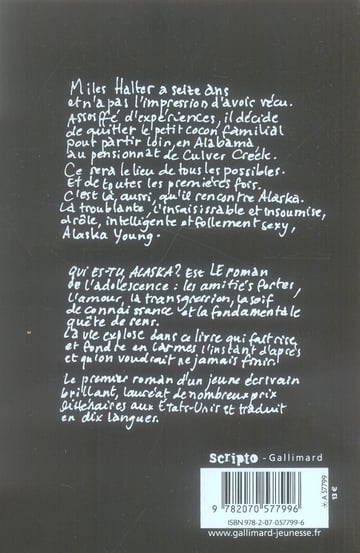 Miles Halter a seize ans
et n'a pas l'impression d'avoir vécu.
Assoiffé d'expériences, il décide
de quitter le petit cocon familial
pour partir loin, en Alabama
au pensionnat de Culver Creek.
Ce sera le lieu de tous les possibles.
Et de toutes les premières fois.
C'est là, aussi, qu'il rencontre Alaska.
La troublante, l'insaisissable et insoumise,
drôle, intelligente et follement sexy,
Alaska Young.
QUI ES-TU, ALASKA? Est LE roman
de l'adolescence : les amitiés fortes,
l'amour, la transgression, la soif
de connaissance et la fondamentale
quête de sens.
La vie explose dans ce livre qui fait rire
et fondre en larmes l'instant d'après
et qu'on voudrait ne jamais finir!
Le premier roman d'un jeune écrivain
brillant, lauréat de nombreux prix
littéraires aux États-Unis et traduit
en dix langues.
scripto - Gallimard
9 782070 577996
A.57799
13 €
ISBN 978-2-07-057799-6
www.gallimard-jeunesse.fr